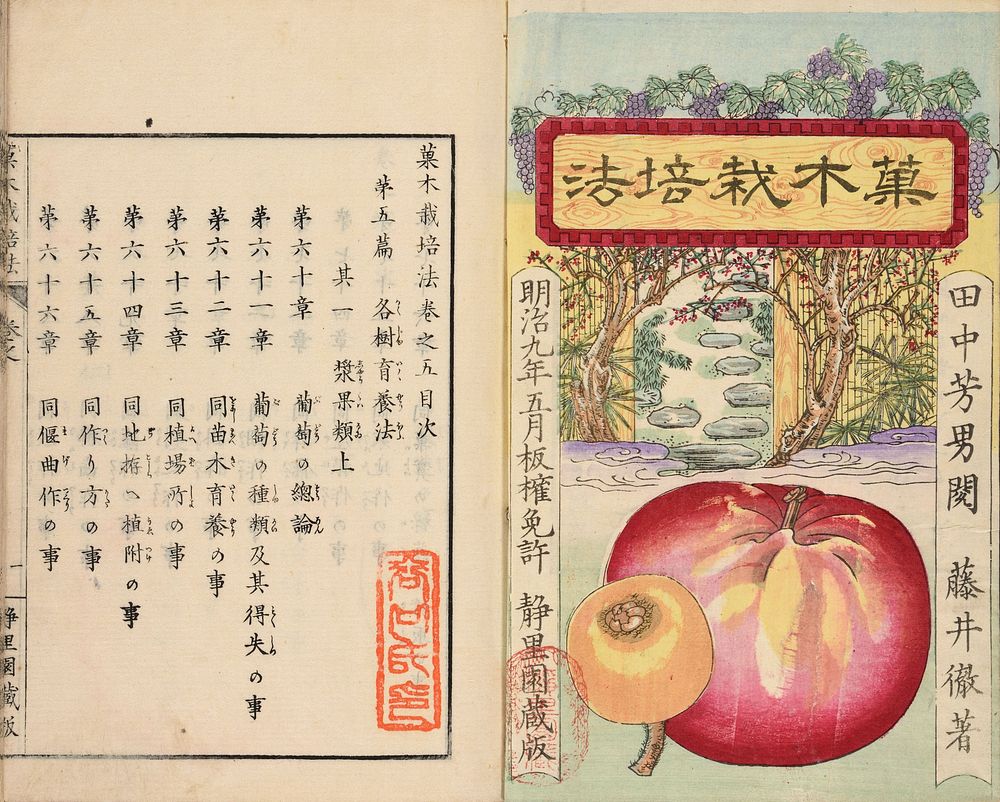 菓木栽培法
田中芳男閲　藤井徹著
明治九年五月板権免許　静里園蔵版
菓木栽培法巻之五目次
第五篇　各樹育養法
其一　漿果類上
第六十章　葡萄の總論
第六十一章　葡萄の種類及其得失の事
第六十二章　同苗木育養の事
第六十三章　同植場所の事
第六十四章　同地拵へ植附の事
第六十五章　同作り方の事
第六十六章　同偃曲作の事
菓木栽培法　巻之
一　静里園蔵版